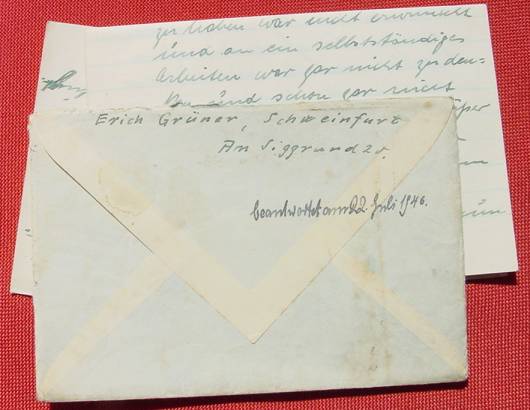 zu haben war nicht erwünscht
und an ein selbstständiges
Arbeiten war gar nicht zu den-
und schon gar nicht
Erich Grüner, Schweinfurt
An Siggrund 25.
beantwortet am 22. Juli 1946.